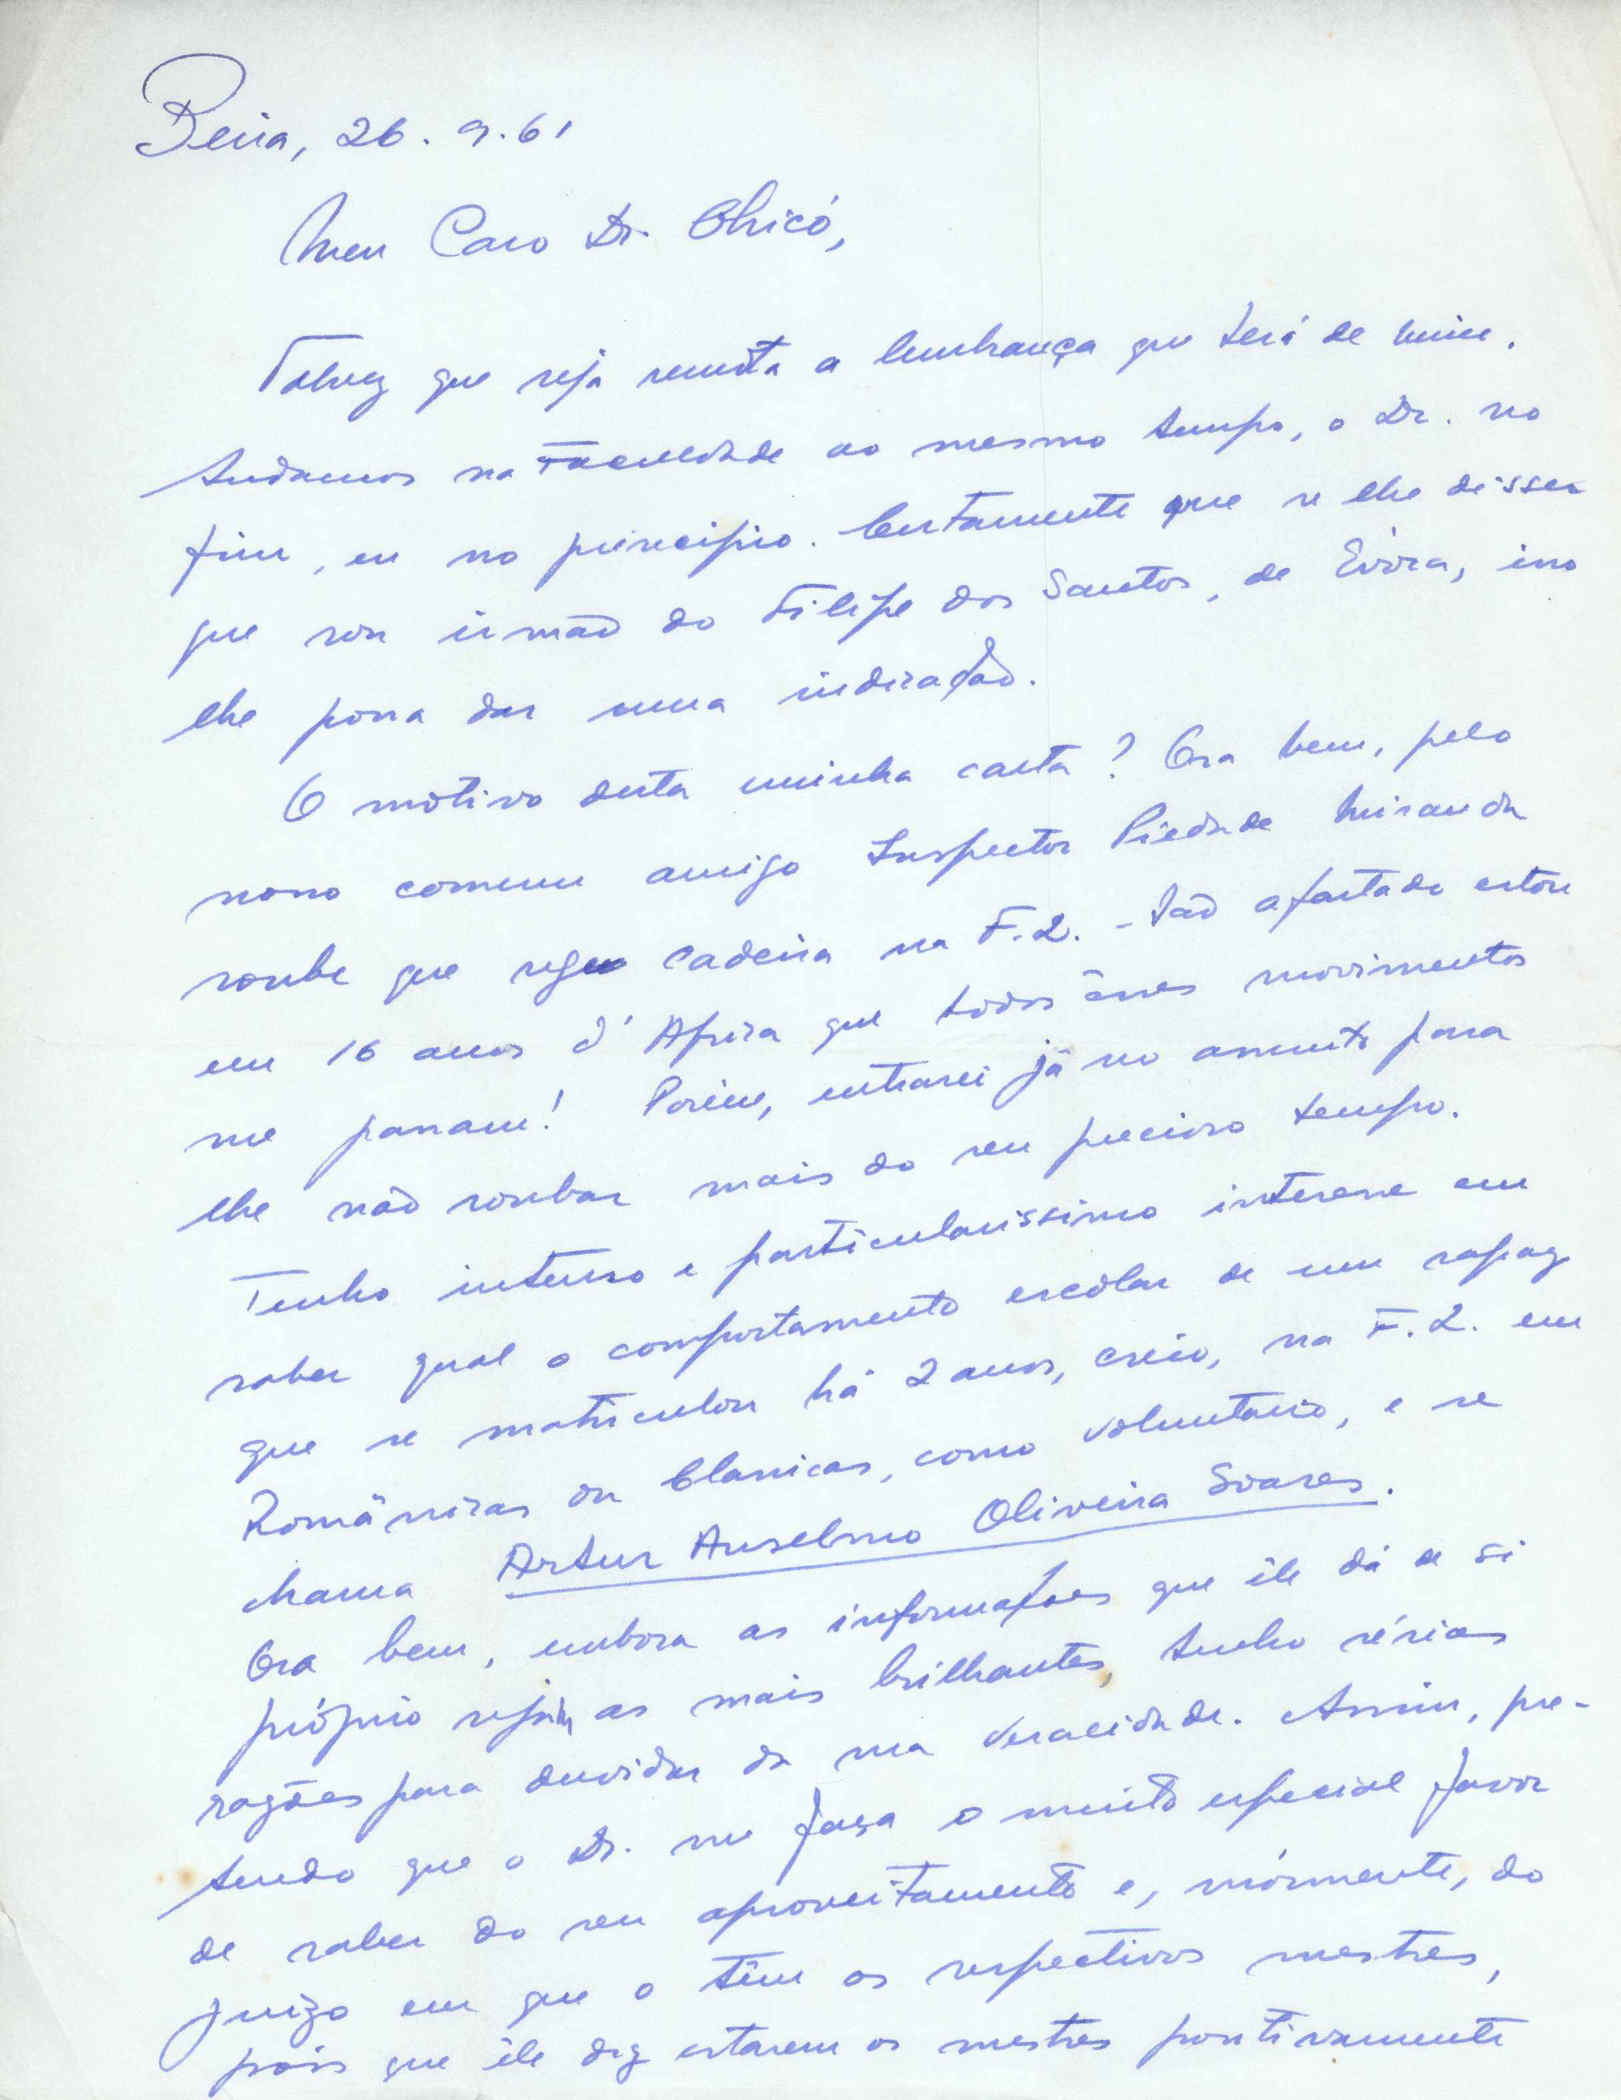 Beira, 26.9.61
Meu Caro Dr. Chicó,
Talvez que seja remota a lembrança que terá de mim.
Andamos na Faculdade ao mesmo tempo, o Dr. no
fim, eu no princípio. Certamente que se lhe disser
que sou irmão do Filipe dos Santos, de Évora, isso
lhe possa dar uma indicação.
O motivo desta minha carta? Ora bem, pelo
nosso comum amigo Inspector Piedade Miranda
soube que regeu cadeira na F.L. - Tão afastado estou
em 16 anos d'Africa que todos êsses movimentos
me passam! Porém, entrarei já no assunto para
lhe não roubar mais do seu precioso tempo.
Tenho intenso e particularissimo interesse em
saber qual o comportamento escolar de um rapaz
que se matriculou há 2 anos, creio, na F.L. em
Românicas ou Classicas, como voluntario, e se
chama Artur Anselmo Oliveira Soares.
Ora bem, embora as informações que êle dá de si
próprio sejam as mais brilhantes, tenho sérias
razões para duvidar da sua veracidade. Assim, pre-
tendo que o Dr. me faça o muito especial favor
de saber do seu aproveitamento e, mórmente, do
juizo em que o têm os respectivos mestres,
pois que êle diz estarem os mestres positivamente